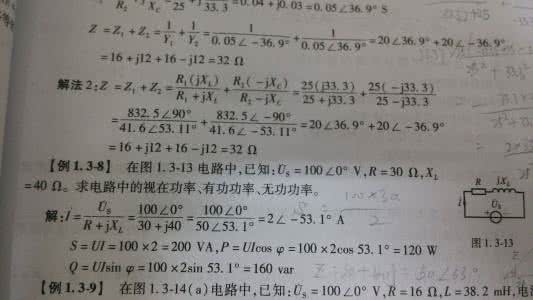 R₂ X_C −25 j33.3 =0.04+j0.03=0.05∠36.9° S
Z=Z₁+Z₂=1/Y₁+1/Y₂=1/0.05∠−36.9°+1/0.05∠36.9°=20∠36.9°+20∠−36.9°
=16+j12+16−j12=32 Ω
解法2:Z=Z₁+Z₂=R₁(jX_L)/R₁+jX_L+R₂(−jX_C)/R₂−jX_C=25(j33.3)/25+j33.3+25(−j33.3)/25−j33.3
=832.5∠90°/41.6∠53.11°+832.5∠−90°/41.6∠−53.11°=20∠36.9°+20∠−36.9°
=16+j12+16−j12=32 Ω
【例1.3-8】 在图1.3-13电路中,已知:U̇s=100∠0° V,R=30 Ω,X_L
=40 Ω。求电路中的视在功率、有功功率、无功功率。
解:İ=U̇s/R+jX_L=100∠0°/30+j40=100∠0°/50∠53.1°=2∠−53.1° A
S=UI=100×2=200 VA,P=UIcos φ=100×2cos 53.1°=120 W
Q=UIsin φ=100×2sin 53.1°=160 var
R jX_L
İ U̇s
图1.3-13
【例1.3-9】 在图1.3-14(a)电路中,已知:U̇s=100∠0° V,R=16 Ω,L=38.2 mH,电